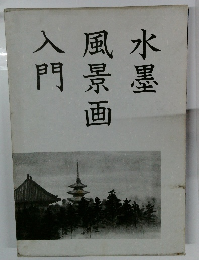 水墨
風景画
入門